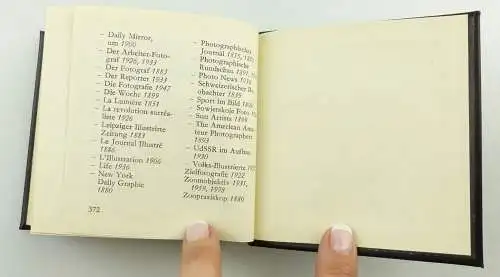 – Daily Mirror,
um 1900
– Der Arbeiter-Foto-
graf 1926, 1933
Der Fotograf 1883
– Der Reporter 1933
– Die Fotografie 1947
– Die Woche 1899
– La Lumière 1851
– La revolution surréa-
liste 1926
– Leipziger Illustrirte
Zeitung 1883
– Le Journal Illustré
1886
– L'Illustration 1906
– Life 1936
– New York
Daily Graphic
1880
372
– Photographisches
Journal
Photographische
Rundschau
– Photo News
– Schweizerischer
obachter 1839
– Sport im Bild
– Sowjetskoje Foto
– Sun Artists
– The American Ama-
teur Photographer
1893
– UdSSR im Aufbau
1930
– Volks-Illustrierte
Zielfotografie 1922
Zoomobjektiv 1931,
1959,
Zoopraxiskop 1880